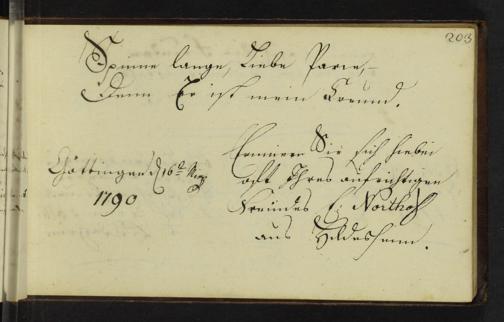 203
Spinne lange, Liebe Parce,
Denn Er ist mein Freund.
Göttingen d 16
1790
Erinnern Sie sich hiebei
oft Ihres aufrichtigen
Freundes Northof
aus Hildesheim.